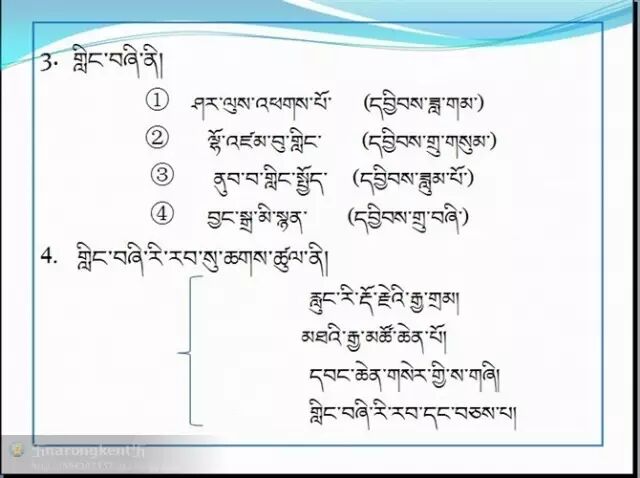 3. གླིང་བཞི་ནི།
① ཤར་ལུས་འཕགས་པོ་ (དབྱིབས་ཟླ་གམ་)
② ལྷོ་འཛམ་བུ་གླིང་ (དབྱིབས་གྲུ་གསུམ་)
③ ནུབ་བ་གླིང་སྤྱོད་ (དབྱིབས་ཟླུམ་པོ་)
④ བྱང་སྒྲ་མི་སྙན་ (དབྱིབས་གྲུ་བཞི་)
4. གླིང་བཞི་རི་རབ་སུ་ཆགས་ཚུལ་ནི།
རླུང་རི་རྡོ་རྗེའི་རྒྱ་གྲམ།
མཐའི་རྒྱ་མཚོ་ཆེན་པོ།
དབང་ཆེན་གསེར་གྱི་ས་གཞི།
གླིང་བཞི་རི་རབ་དང་བཅས་པ།
narongkent